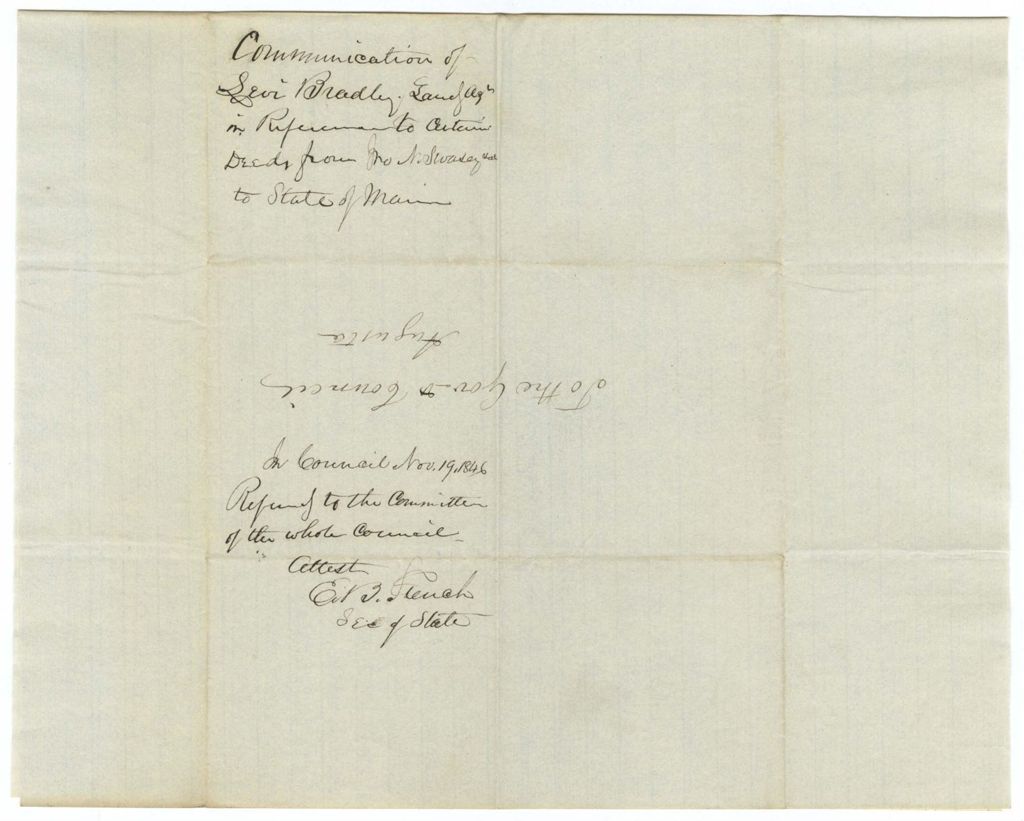 Communication of
Levi Bradley. Land Agt
in Reference to Certain
Deeds from Jno N. Swasey
to State of Maine
To the Gov & Council
Augusta
In Council Nov. 19, 1846
Referred to the Committee
of the whole Council
Attest
E. B. French
Sec of State